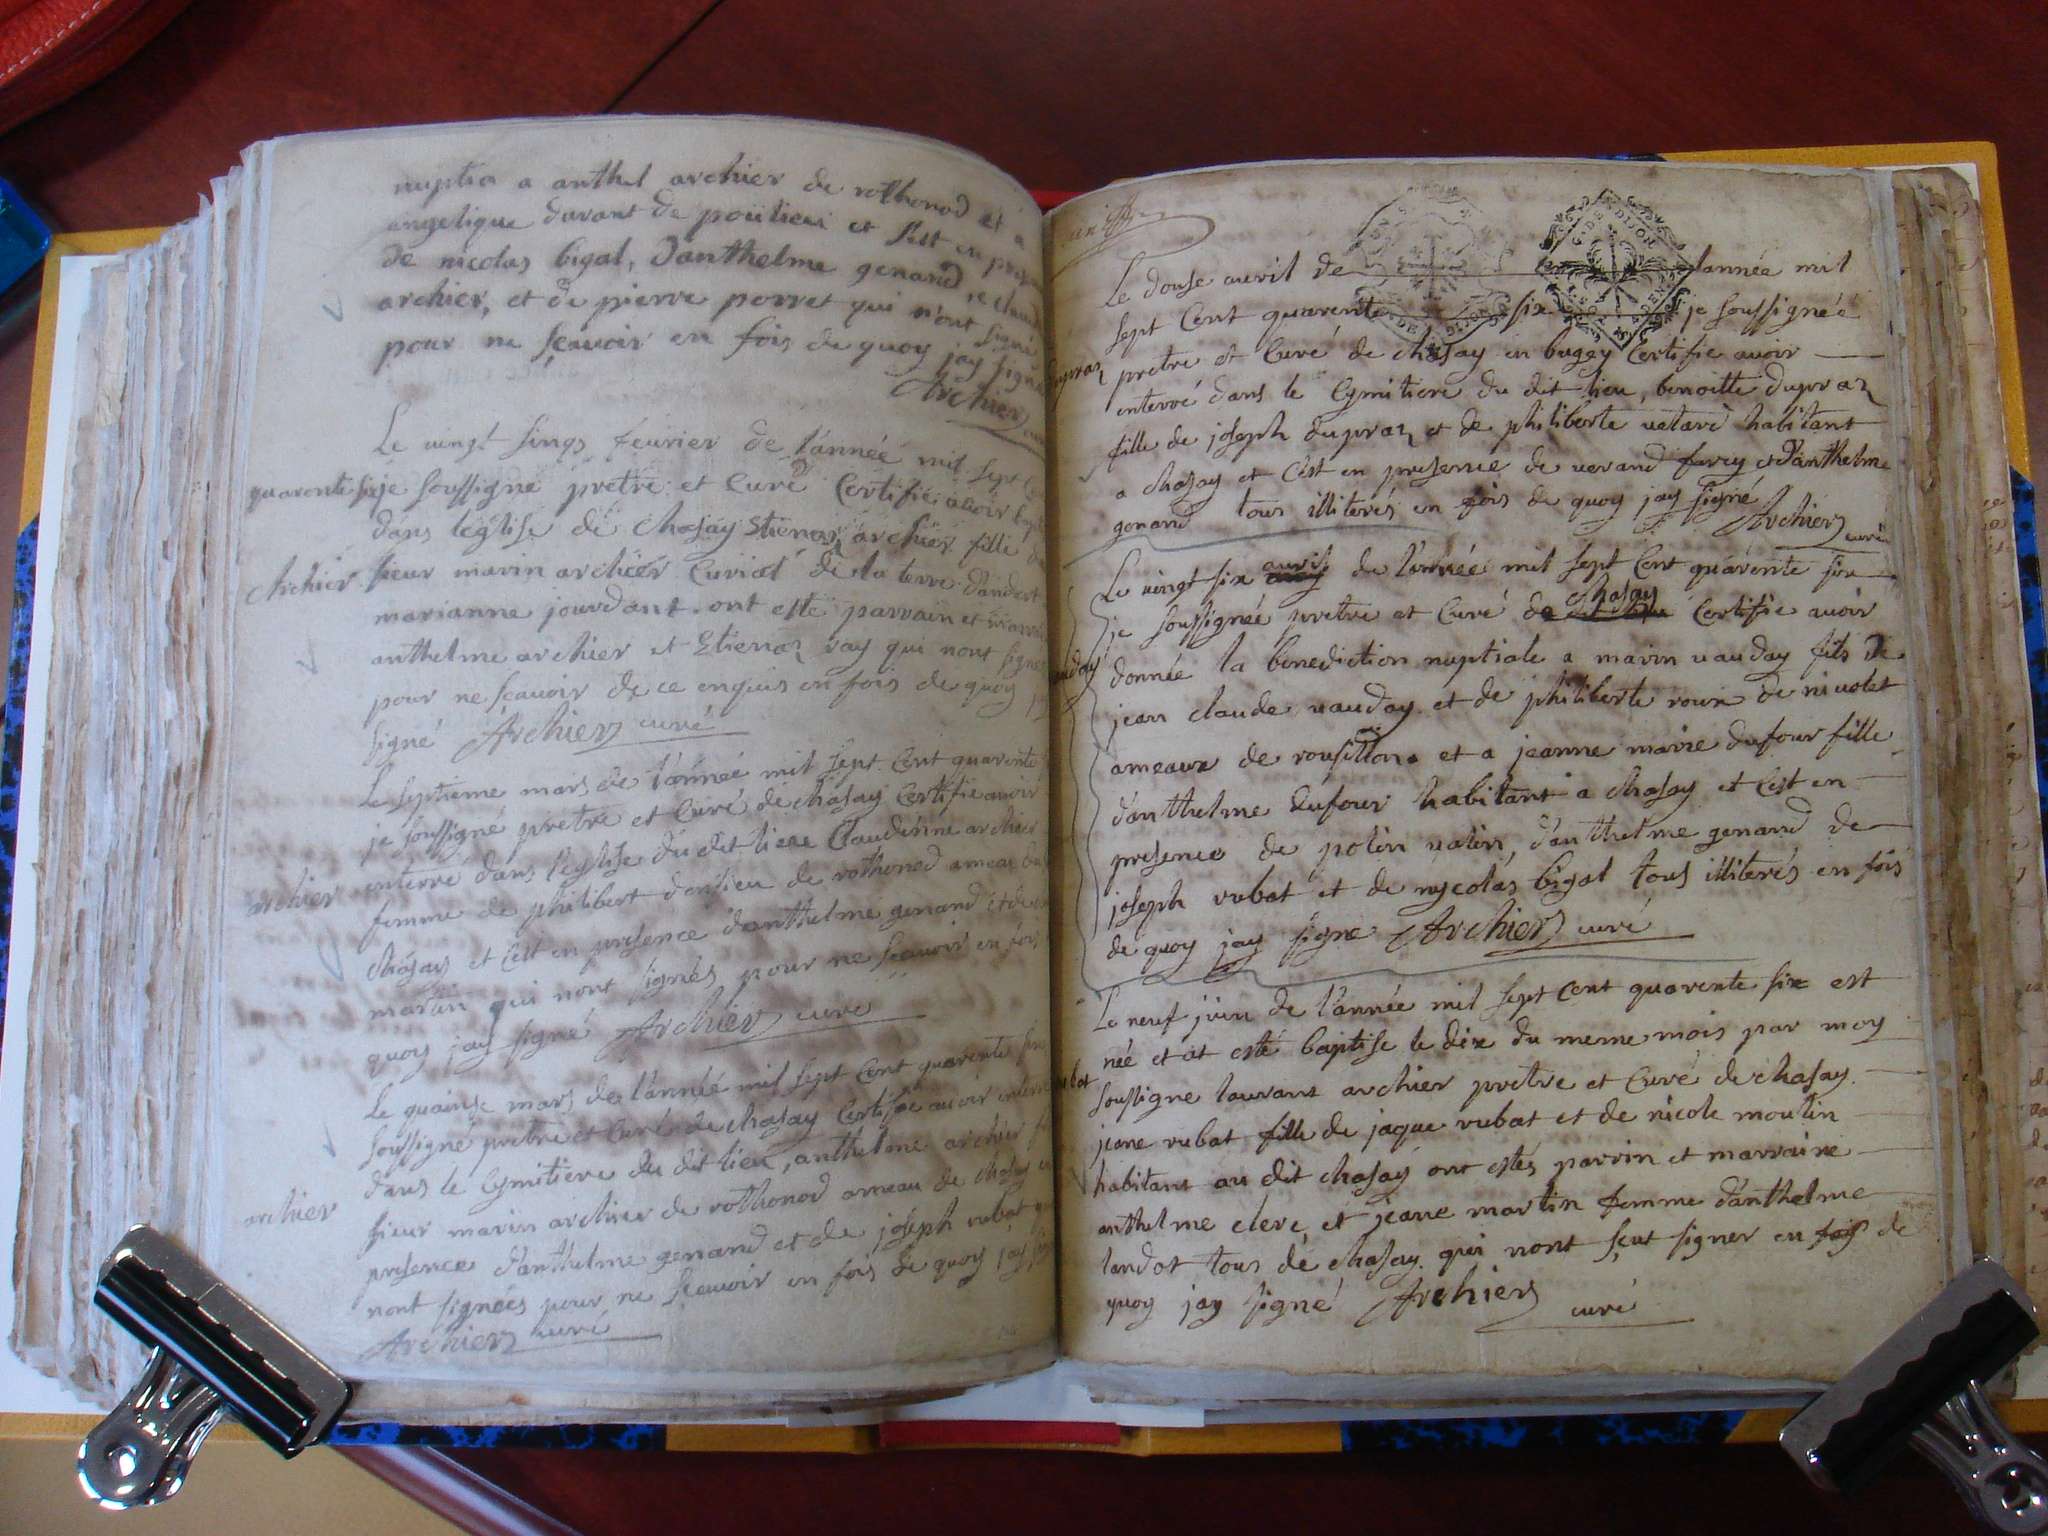 nuptia a anthel archier de rothonod et a
angelique durant de poülieu et s'est en
de nicolas bigal, d'anthelme genand, de claude
archier, et de pierre perret qui n'ont signé
pour ne sçauoir en fois de quoy jay signé
Archier curé
Le uingt sings feurier de l'année mil sept
quarente six je soussigné prétre et Curé Certifie auoir
dans leglise de Chasay Stienaz archier fille
Archier
sieur marin archier Curial de la terre d'andert
marianne jourdant ont esté parrain et
anthelme archier et Etienaz ray qui nont signé
pour ne scauoir de ce enquis en fois de quoy
signé Archier curé
Le septieme mars de l'année mil sept Cent quarente
je soussigné pretre et Curé de chasay Certifie auoir
enterré dans l'eglise du dit lieu Claudinne archier
archier
femme de philibert de rothonod ameau
chasay et c'est en presence d'anthelme genand et de
martin qui nont signés pour ne scauoir en fois
quoy jay signé Archier curé
Le quainse mars de l'année mil sept Cent quarente six
soussigné pretre et Curé de chasay Certifie auoir enterré
dans le Cymitiere du dit lieu, anthelme archier
archier
sieur marin archier de rothonod ameau de chasay
presence d'anthelme genand et de joseph rubat
nont signées pour ne scauoir en fois de quoy jay
Archier curé
Le douse auril de l'année mil
G. DE DIJON
sept Cent quarente six je soussignéé
dupraz
pretre et Curé de chasay en bugey Certifie auoir
enterré dans le Cymitiere du dit lieu, benoitte dupraz
fille de joseph dupraz et de philiberte uetard habitant
a chasay et C'est en presence de uerand furey et d'anthelme
gonand tous illiterés en fois de quoy jay signé
Archier curé
Le uingt six auril de l'année mil sept Cent quarente six
je soussignée pretre et Curé de chasay Certifie auoir
donnée la benediction nuptiale a marin uauday fils de
jean claude uauday et de philiberte roux de niuolet
ameaux de rousillon et a jeanne marie dufour fille
d'anthelme dufour habitant a chasay et C'est en
presence de potin uatin, d'anthelme genand de
joseph rubat et de nycolas bigal tous illiterés en fois
de quoy jay signe Archier curé
Le neuf juin de l'année mil sept Cent quarente six est
née et at esté baptise le dix du meme mois par moy
soussigne laurant archier pretre et Curé de chasay
jeane rubat fille de jaque rubat et de nicole moulin
habitant au dit chasay ont estés parrin et marraine
anthelme clerc et jeane martin femme d'anthelme
landot tous de chasay qui nont sçut signer en fois de
quoy jay signé Archier curé